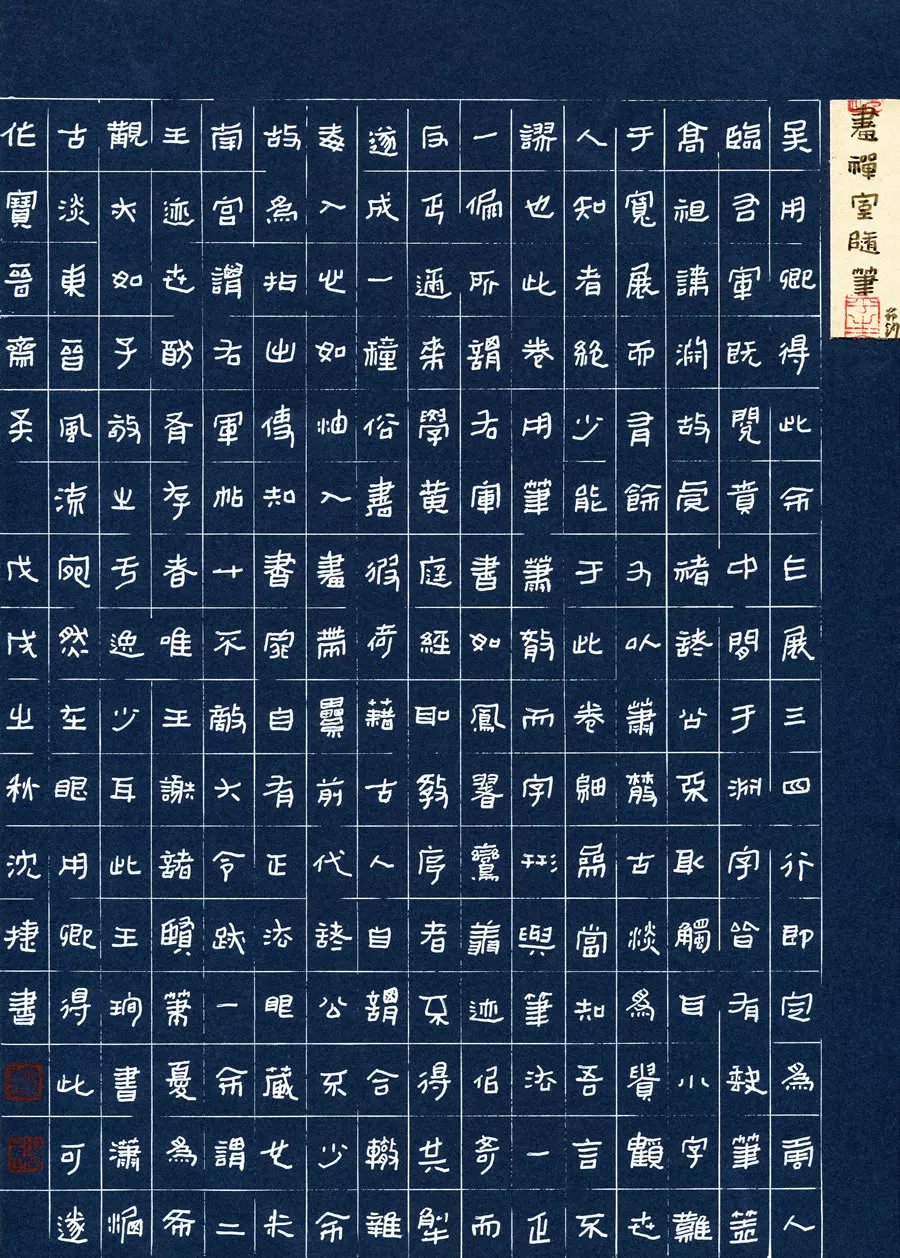 畫禪室隨筆
節錄
吴用卿得此余乍展三四行即定為唐人
臨右軍既閱竟中間于淵字皆有缺筆蓋
高祖諱淵故虞褚諸公不敢觸耳小字難
于寬展而有餘又以蕭散古淡為貴顧世
人知者絶少能于此卷細為當知吾言不
謬也此卷用筆蕭散而字形與筆法一正
一偏所謂右軍書如鳳翥鸞翔迹似奇而
反正邇来學黄庭經聖教序者不得其解
遂成一種俗書彼荷藉古人自謂合轍雜
毒入心如油入畫帶纍前代諸公不少余
故為拈出傳知書家自有正法眼藏也米
南宫謂右軍帖十不敵大令跡一余謂二
王迹世猶有存者唯王謝諸賢筆憂為希
觀大如子敬之于逸少耳此王珣書瀟灑
古淡東晉風流宛然在眼用卿得此可遂
作寶晉齋矣 戊戌之秋沈捷書